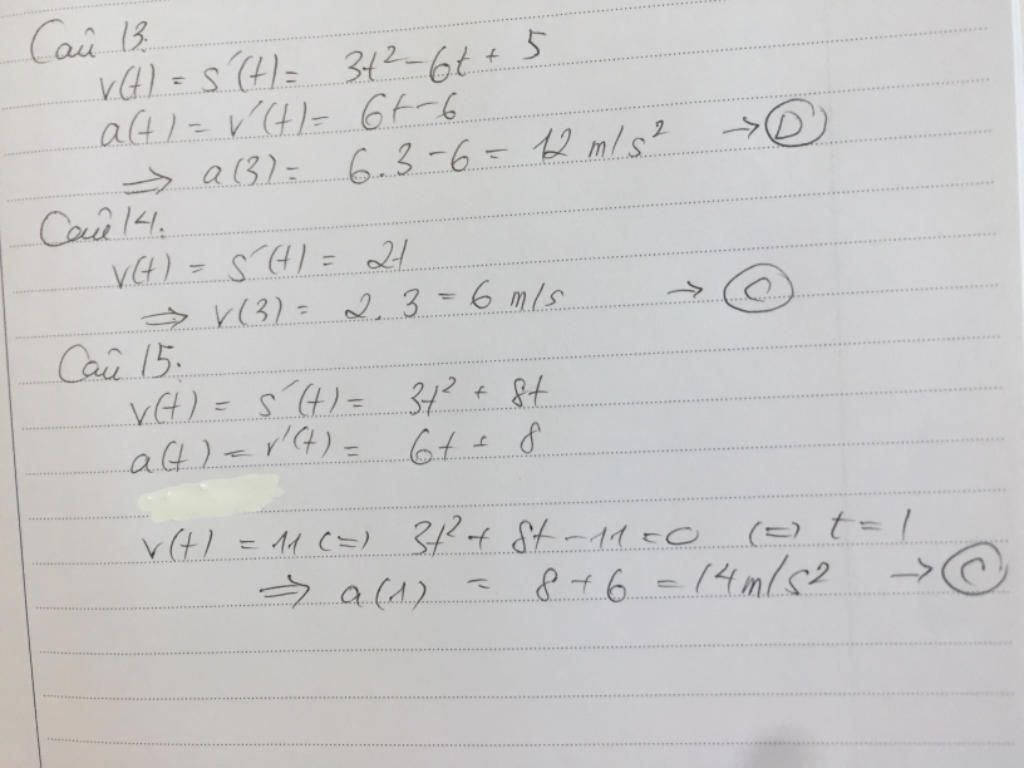 Câu 13.
v(t) = s'(t) = 3t² - 6t + 5
a(t) = v'(t) = 6t - 6
⇒ a(3) = 6.3 - 6 = 12 m/s² → D
Câu 14.
v(t) = s'(t) = 2t
⇒ v(3) = 2.3 = 6 m/s → C
Câu 15.
v(t) = s'(t) = 3t² + 8t
a(t) = v'(t) = 6t + 8
v(t) = 11 (=) 3t² + 8t - 11 = 0 (=) t = 1
⇒ a(1) = 8 + 6 = 14 m/s² → C